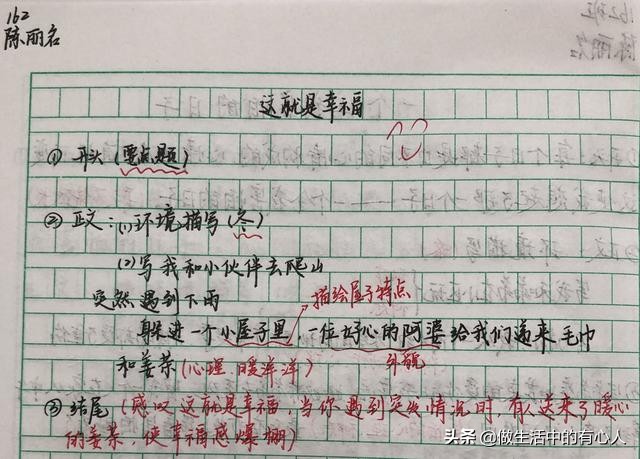 162
陈丽名
这就是幸福
① 开头 (要点题)
② 正文: (1)环境描写 (冬)
(2)写我和小伙伴去爬山
突然遇到下雨
描绘屋子特点
躲进一个小屋子里, 一位好心的阿婆给我们递来毛巾
和姜茶 (心理、暖洋洋)
外貌
③ 结尾 (感叹这就是幸福, 当你遇到突发情况时, 有人送来了暖心
的姜茶, 使幸福感爆棚)
头条 @做生活中的有心人